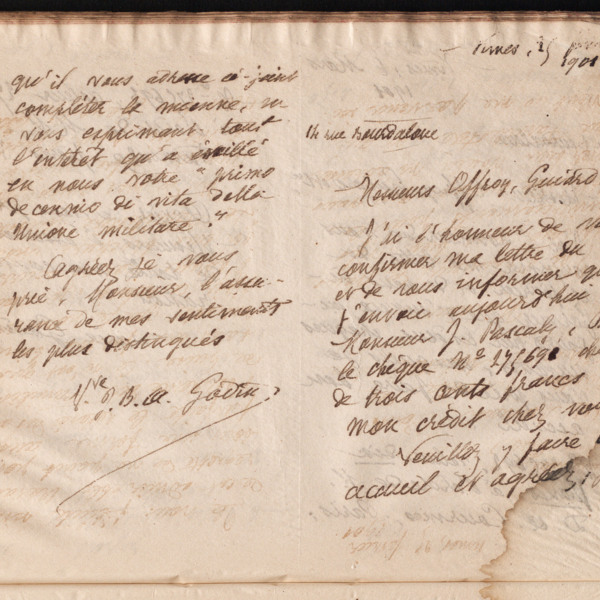 qu'il vous adresse ci-joint
compléter la mienne, en
vous exprimant tout
l'intérêt qu'a éveillé
en nous votre "primo
decennio di vita della
Unione militare."
Agréez je vous
prie, Monsieur, l'assu-
rance de mes sentiments
les plus distingués
Vve J. B. A. Godin
Nimes, 25
1901
14 rue Bourdaloue
Messieurs Offroy, Guiard
J'ai l'honneur de
confirmer ma lettre du
et de vous informer
j'envoie aujourd'hui
Monsieur J. Pascaly,
le chèque No 27569
de trois cents francs
mon crédit chez
Veuillez y faire
accueil et agréer,